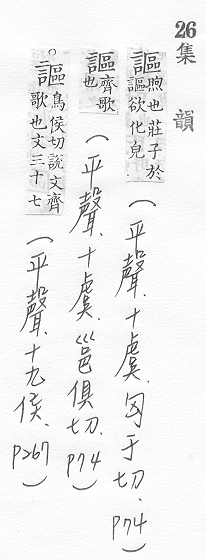 26集韻
謳煦也莊子於謳歈化皃（平聲、十虞、匈于切、P74）
謳齊歌也（平聲、十虞、邕俱切、P74）
。謳烏侯切說文齊歌也文三十七（平聲、十九侯、P267）